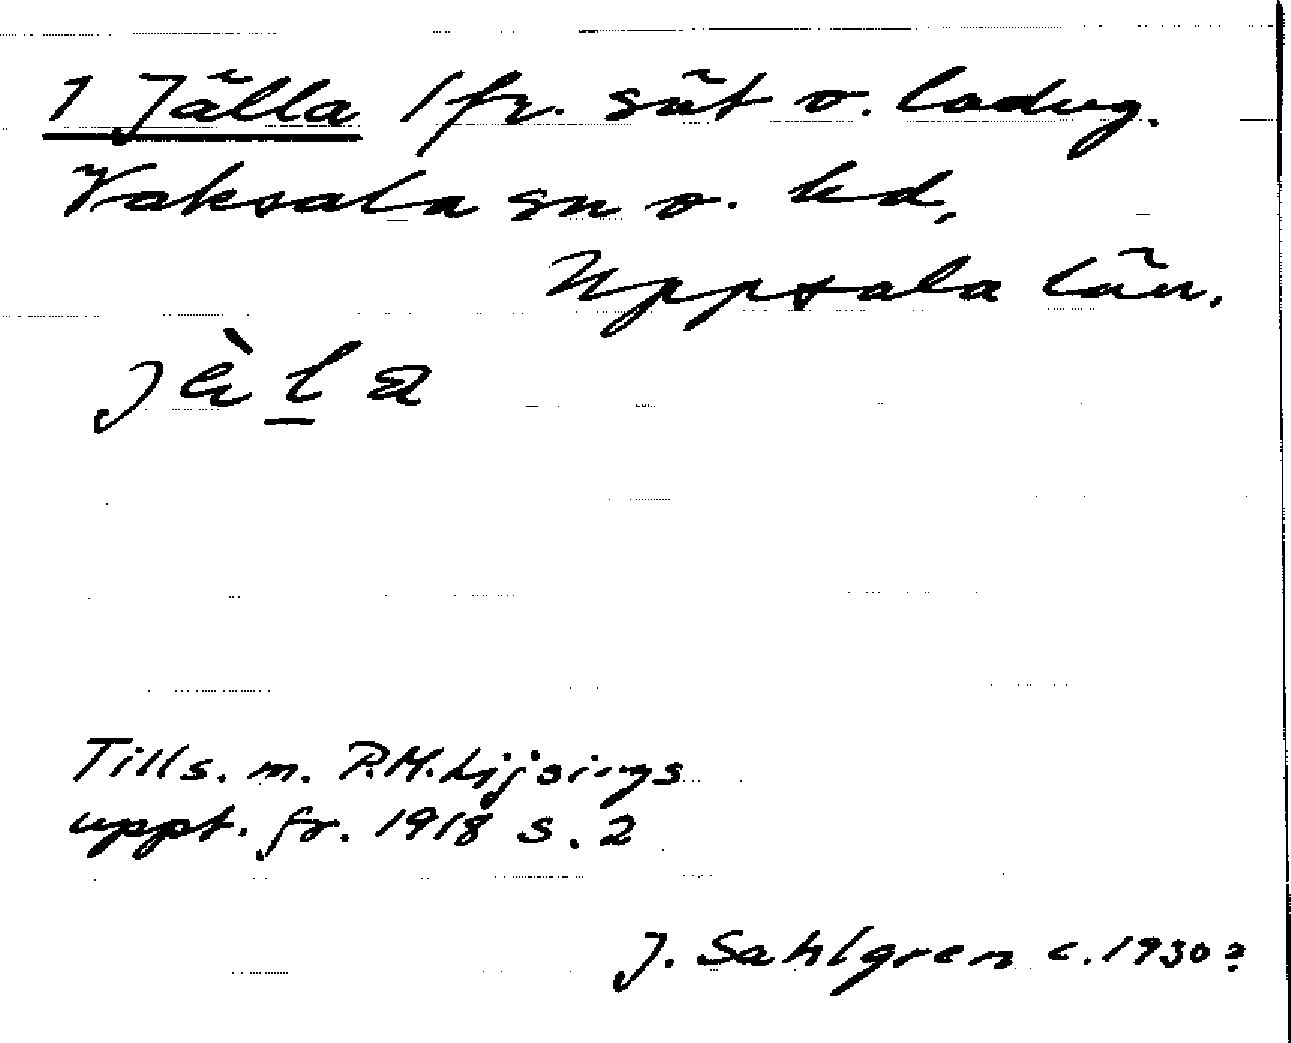 1 Jälla 1 fr. sät o. ladug.
Vaksala sn o. hd,
Uppsala län.
j ὰ l a
Tills. m. P.M. Lijsings
uppt. fr. 1918 s. 2
J. Sahlgren c. 1930?